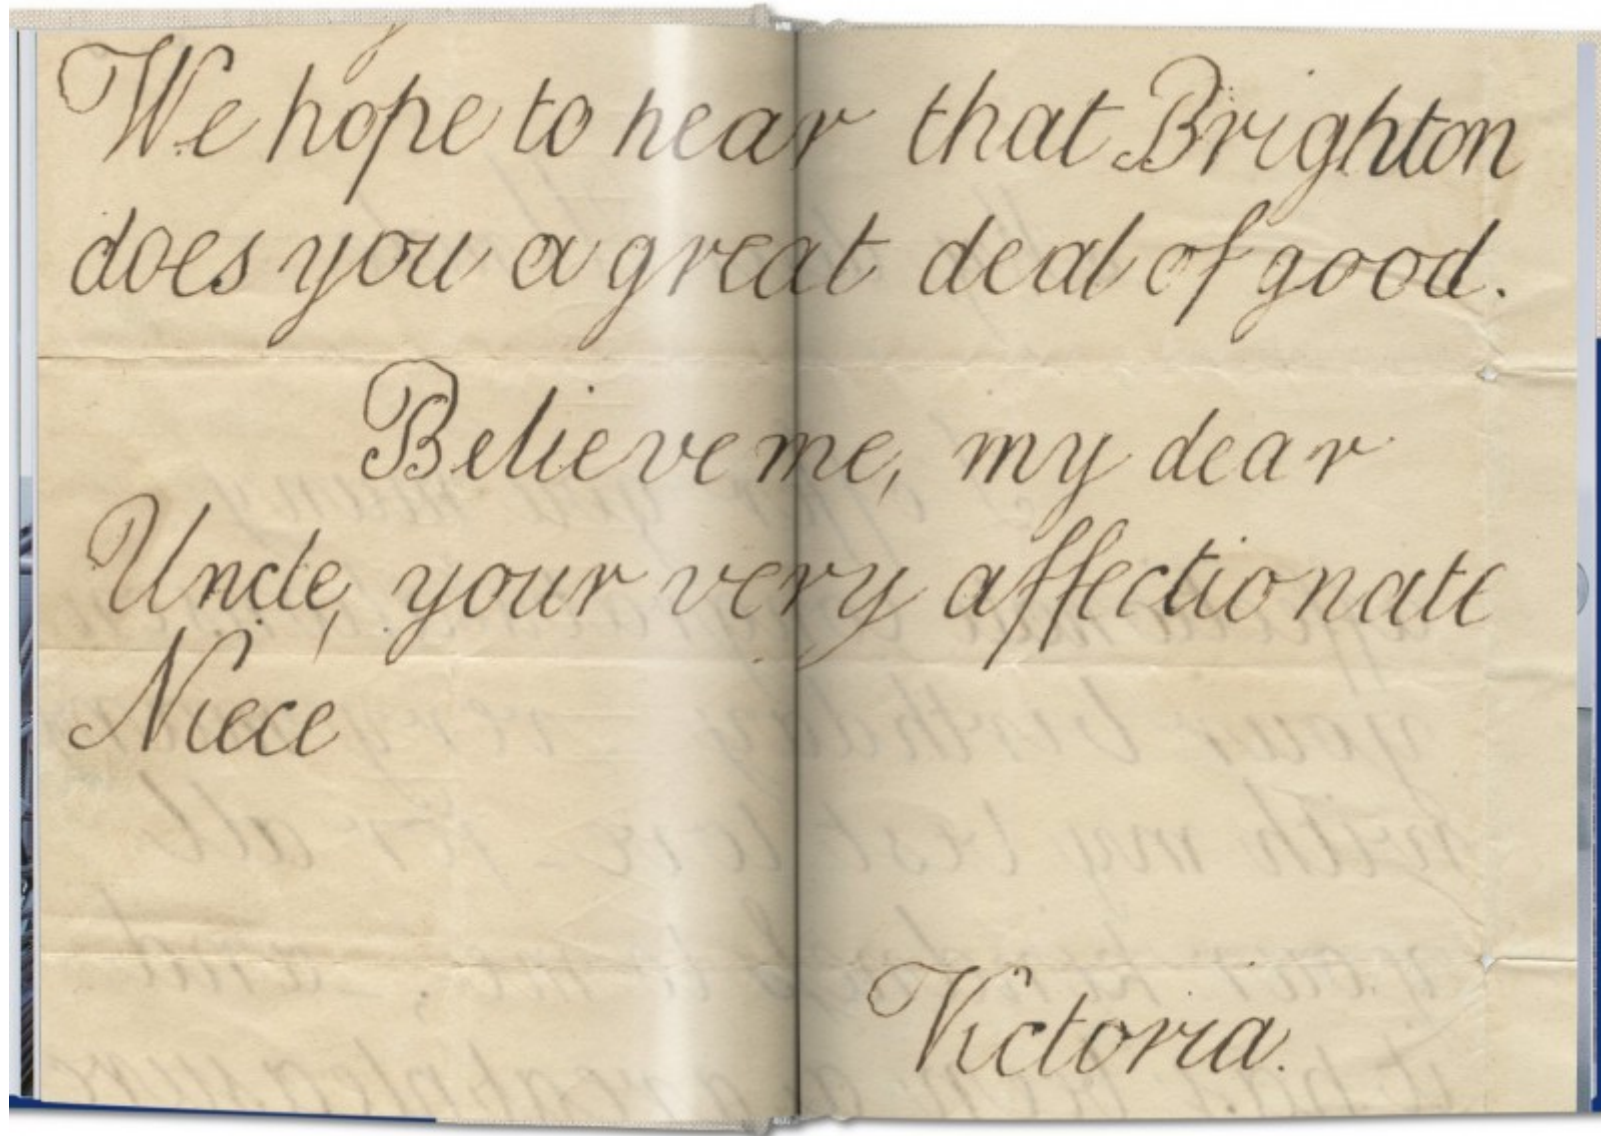 We hope to hear that Brighton
does you a great deal of good.
Believe me, my dear
Uncle, your very affectionate
Niece
Victoria.